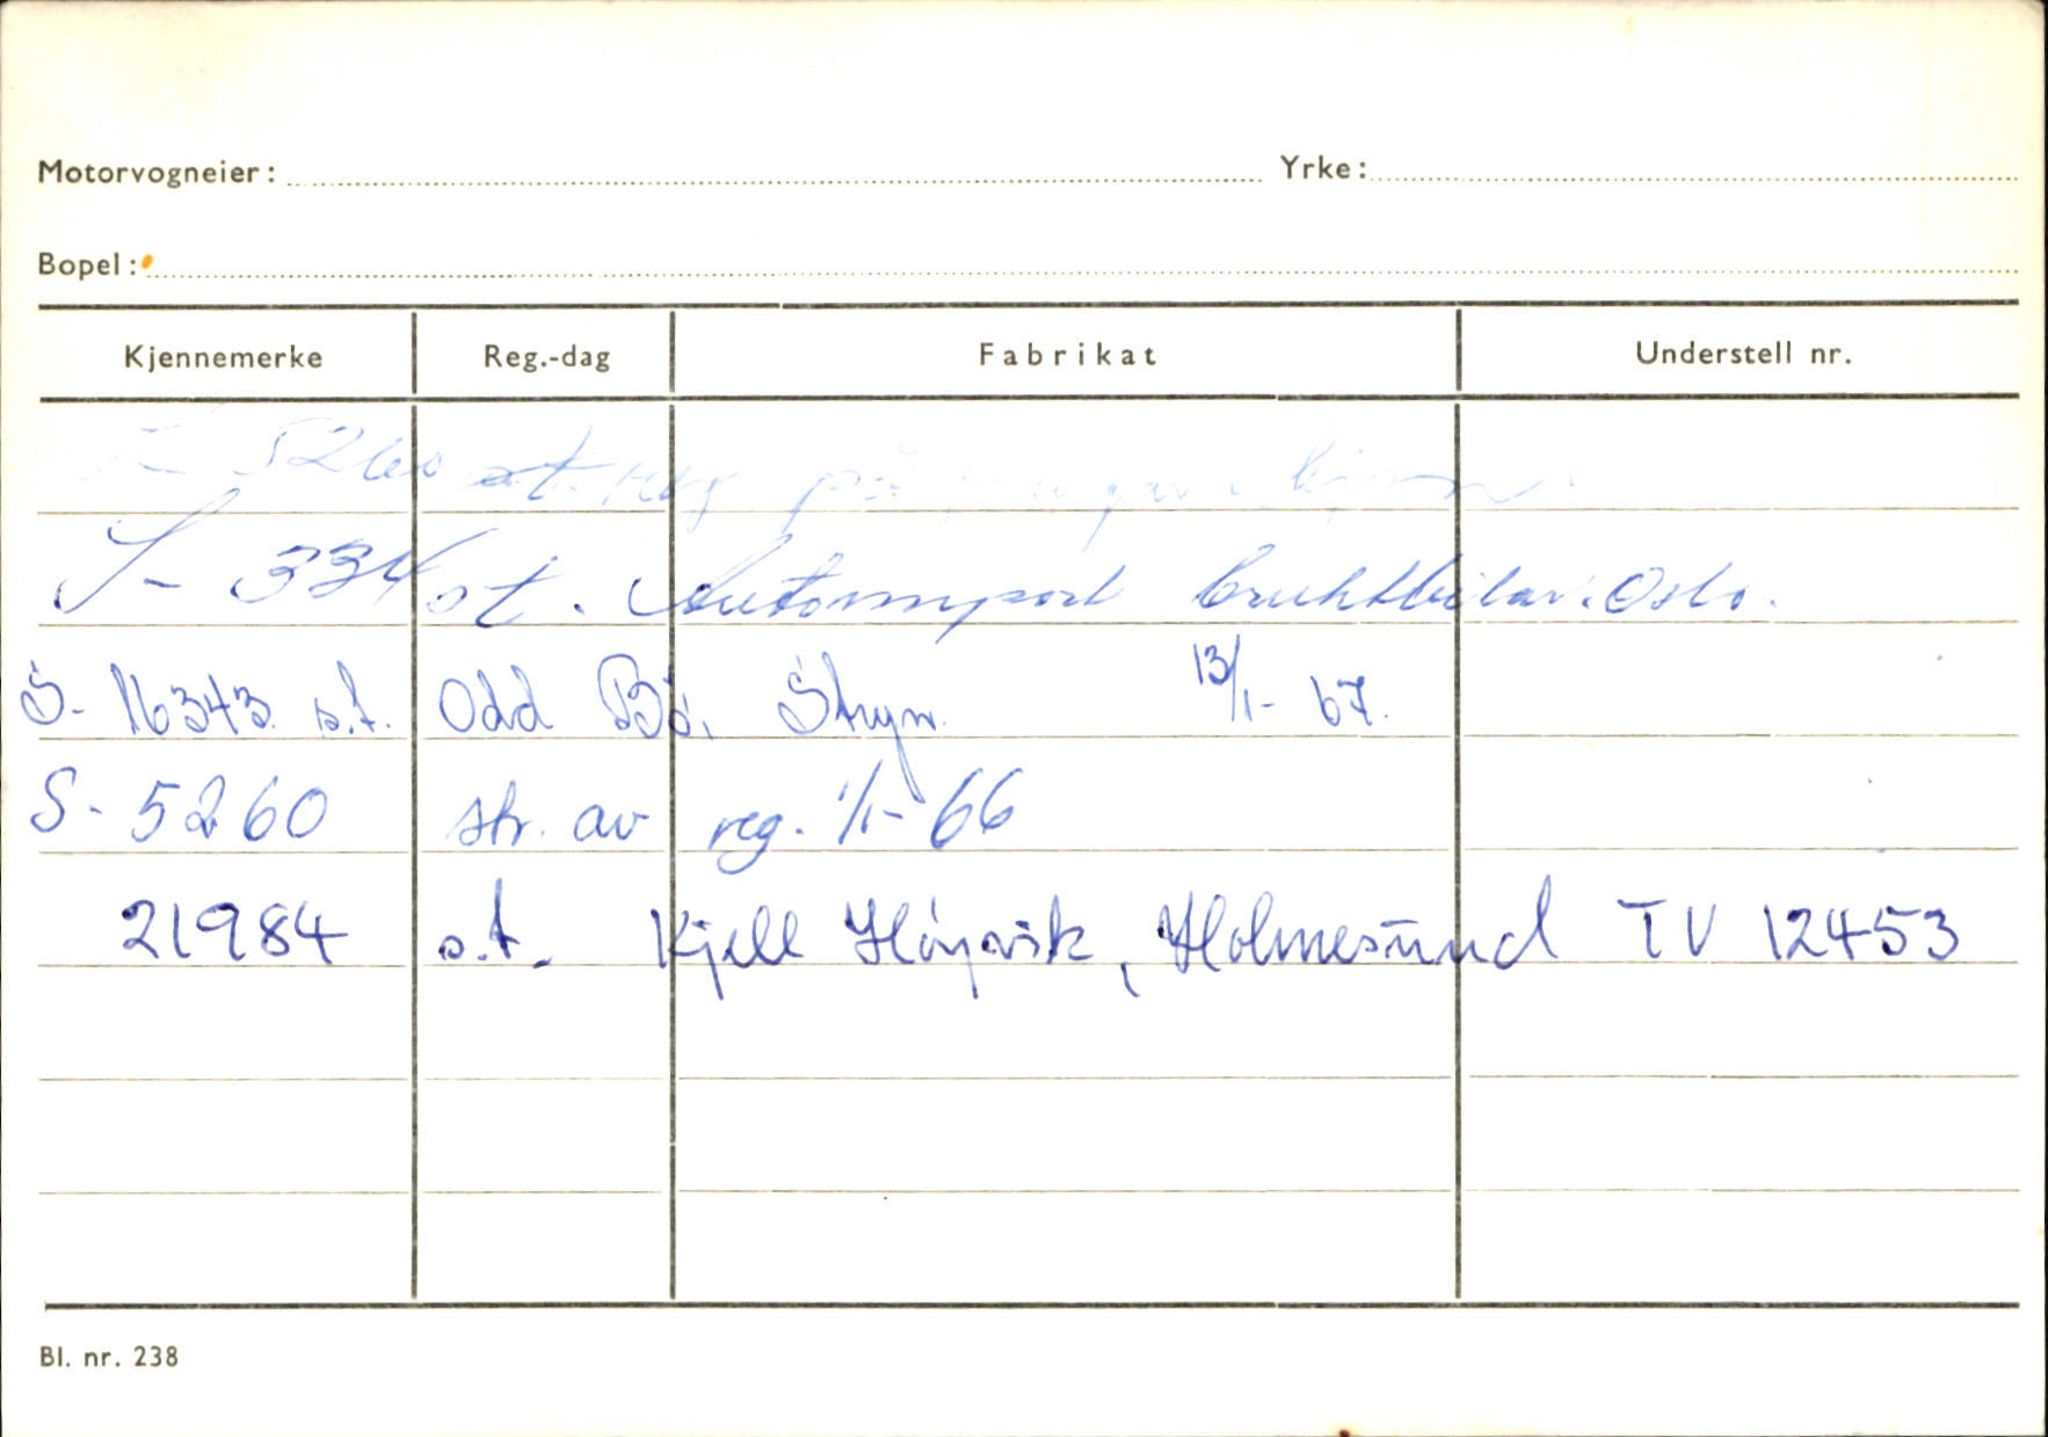 Motorvogneier: Yrke:
Bopel:
Kjennemerke Reg.-dag Fabrikat Understell nr.
5260 st. reg på
S- 334 st. Autoimport bruktbilar. Oslo.
S- 16343 s.t. Odd Bö, Stryn 13/1- 67.
S- 5260 str. av reg. 1/1- 66
21984 s.t. Kjell Höyvik, Holmesund TV 12453
Bl. nr. 238